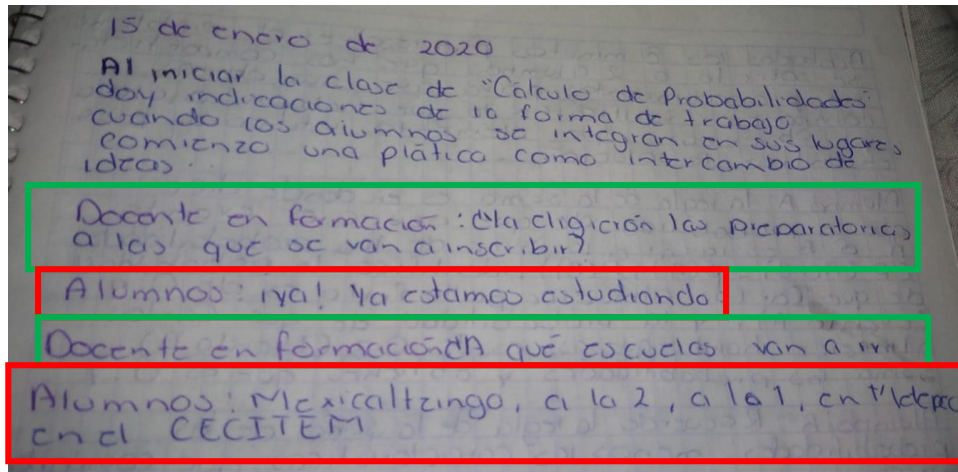 15 de enero de 2020
Al iniciar la clase de "Calculo de Probabilidades"
doy indicaciones de la forma de trabajo
cuando los alumnos se integran en sus lugares
comienzo una plática como intercambio de
ideas.
Docente en formación: ¿Ya eligición las preparatorias
a las que se van a inscribir?
Alumnos: ¡ya! Ya estamos estudiando
Docente en formación ¿A qué escuelas van a
Alumnos: Mexicaltzingo, a la 2, a la 1, en
en el CECITEM